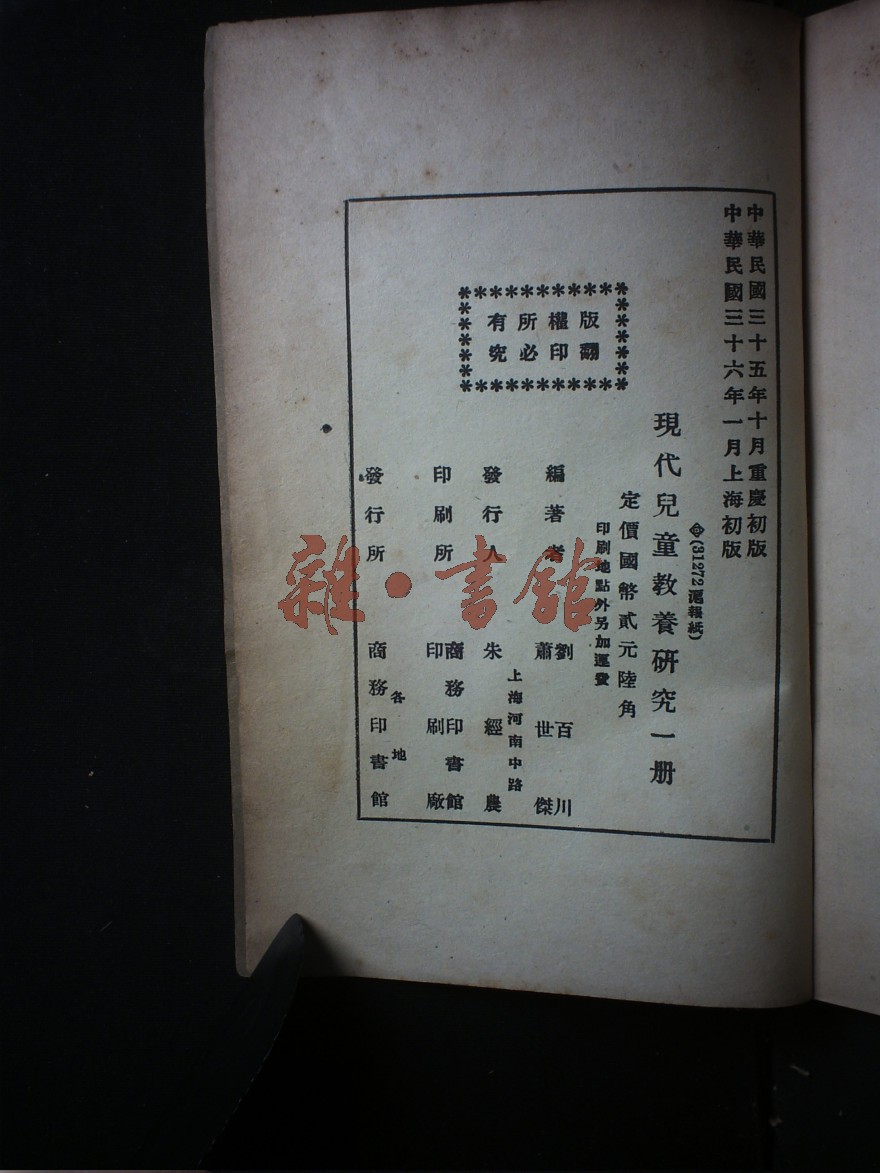 中華民國三十五年十月重慶初版
中華民國三十六年一月上海初版
(31272滬報紙)
現代兒童教養研究一册
定價國幣貳元陸角
印刷地點外另加運費
版權所有
翻印必究
編著者 劉百川 蕭世傑
上海河南中路
發行人 朱經農
印刷所 商務印書館印刷廠
各地
發行所 商務印書館
雜·書館